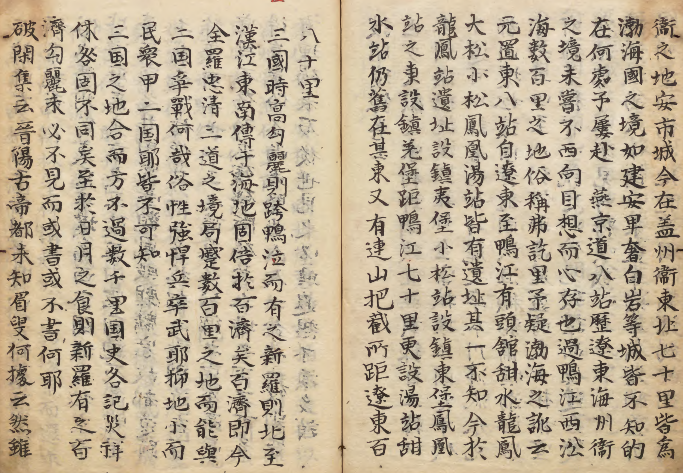 衛之地安市城今在盖州衛東北七十里皆爲
渤海國之境如建安卑奢白岩等城皆不知的
在何處予屢赴 燕京道八站歷遼東海州衛
之境未嘗不西向目想而心存也過鴨江西㳂
海数百里之地俗稱弗訖里予疑渤海之訛云
元置東八站自遼東至鴨江有頭舘甜水龍鳳
大松小松鳳凰湯站皆有遺址其一不知今於
龍鳳站遺址設鎮夷堡小松站設鎮東堡鳳凰
站之東設鎮羌堡距鴨江七十里更設湯站甜
水站仍舊在其東又有連山把截所距遼東百
八十里
三國時高勾麗則跨鴨江而有之新羅則北至
漢江東南傅于海地固倍扵百濟矣百濟即今
全羅忠清二道之境局蹙數百里之地而能與
二國爭戰何哉俗性強悍兵卒武耶抑地小而
民衆甲二国耶皆不可知
三国之地合而方不過数千里国史各記災祥
休咎固不同矣至扵日月之食則新羅有之百
濟勾麗未必不見而或書或不書何耶
破閑集云晉陽古帝都未知眉叟何據云然雖